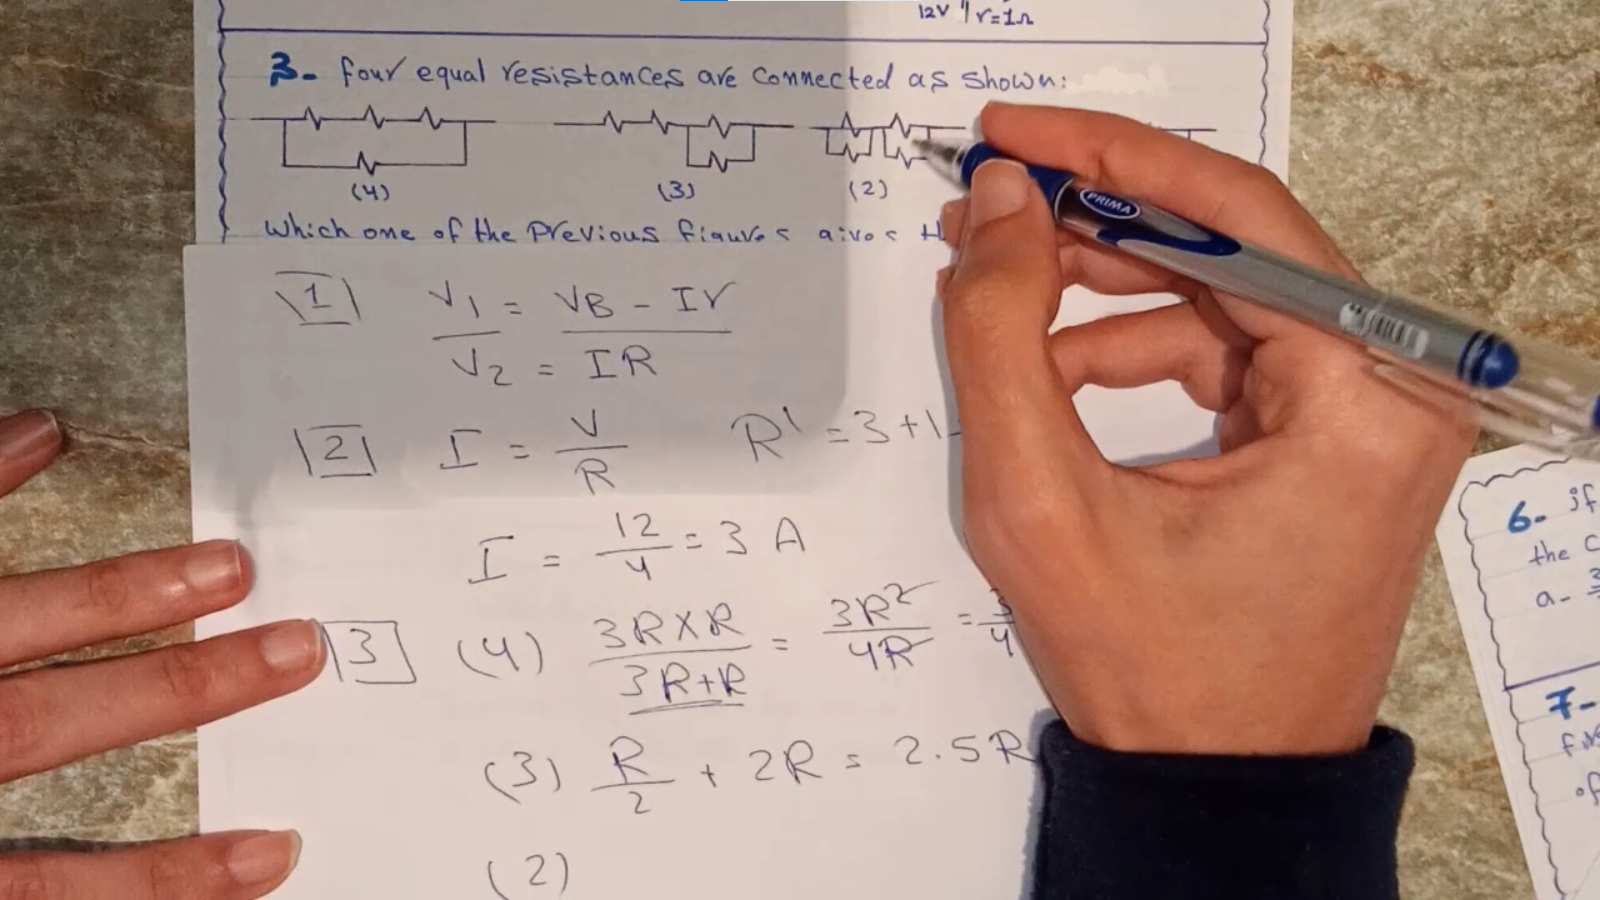 12V r=1Ω
3- four equal resistances are connected as shown:
(4) (3) (2)
Which one of the Previous figures gives
PRIMA
1 V1 = VB - Ir
V2 = IR
2 I = V/R R' = 3+1
I = 12/4 = 3 A
3 (4) 3R×R/3R+R = 3R²/4R = 3/4
(3) R/2 + 2R = 2.5R
(2)
6- if
the
a-
7-
of